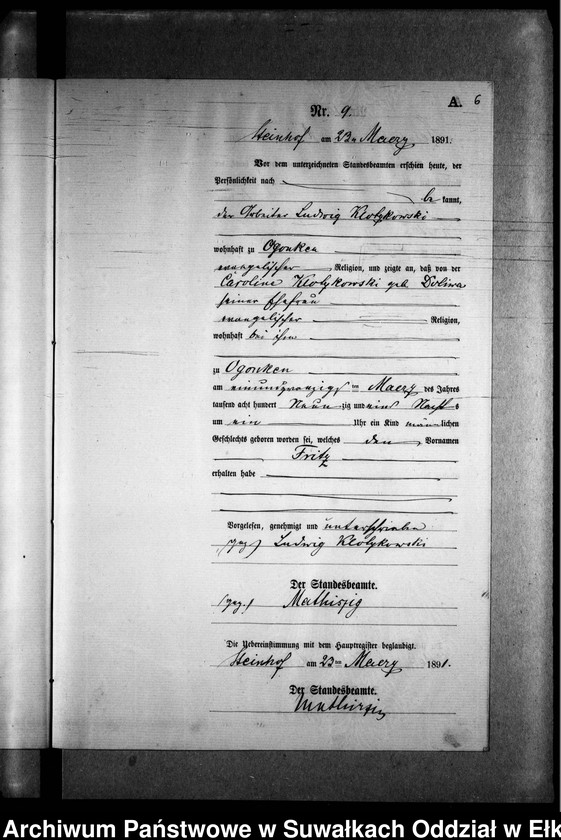 A. 6
Nr. 9.
Steinhof am 23ten Maerz 1891.
Vor dem unterzeichneten Standesbeamten erschien heute, der
Persönlichkeit nach
be kannt,
der Arbeiter Ludwig Klotykowski
wohnhaft zu Ogonken
evangelischer Religion, und zeigte an, daß von der
Caroline Klotykowski geb. Doliwa
seiner Ehefrau
evangelischer Religion,
wohnhaft bei ihm
zu Ogonken
am einundzwanzigsten Maerz des Jahres
tausend acht hundert Neun zig und eins Nachts
um ein Uhr ein Kind männlichen
Geschlechts geboren worden sei, welches den Vornamen
Fritz
erhalten habe
Vorgelesen, genehmigt und unterschrieben
(gez.) Ludwig Klotykowski
Der Standesbeamte.
(gez.)
Die Uebereinstimmung mit dem Hauptregister beglaubigt.
Steinhof am 23ten Maerz 1891.
Der Standesbeamte.
Archiwum Państwowe w Suwałkach Oddział w Ełk